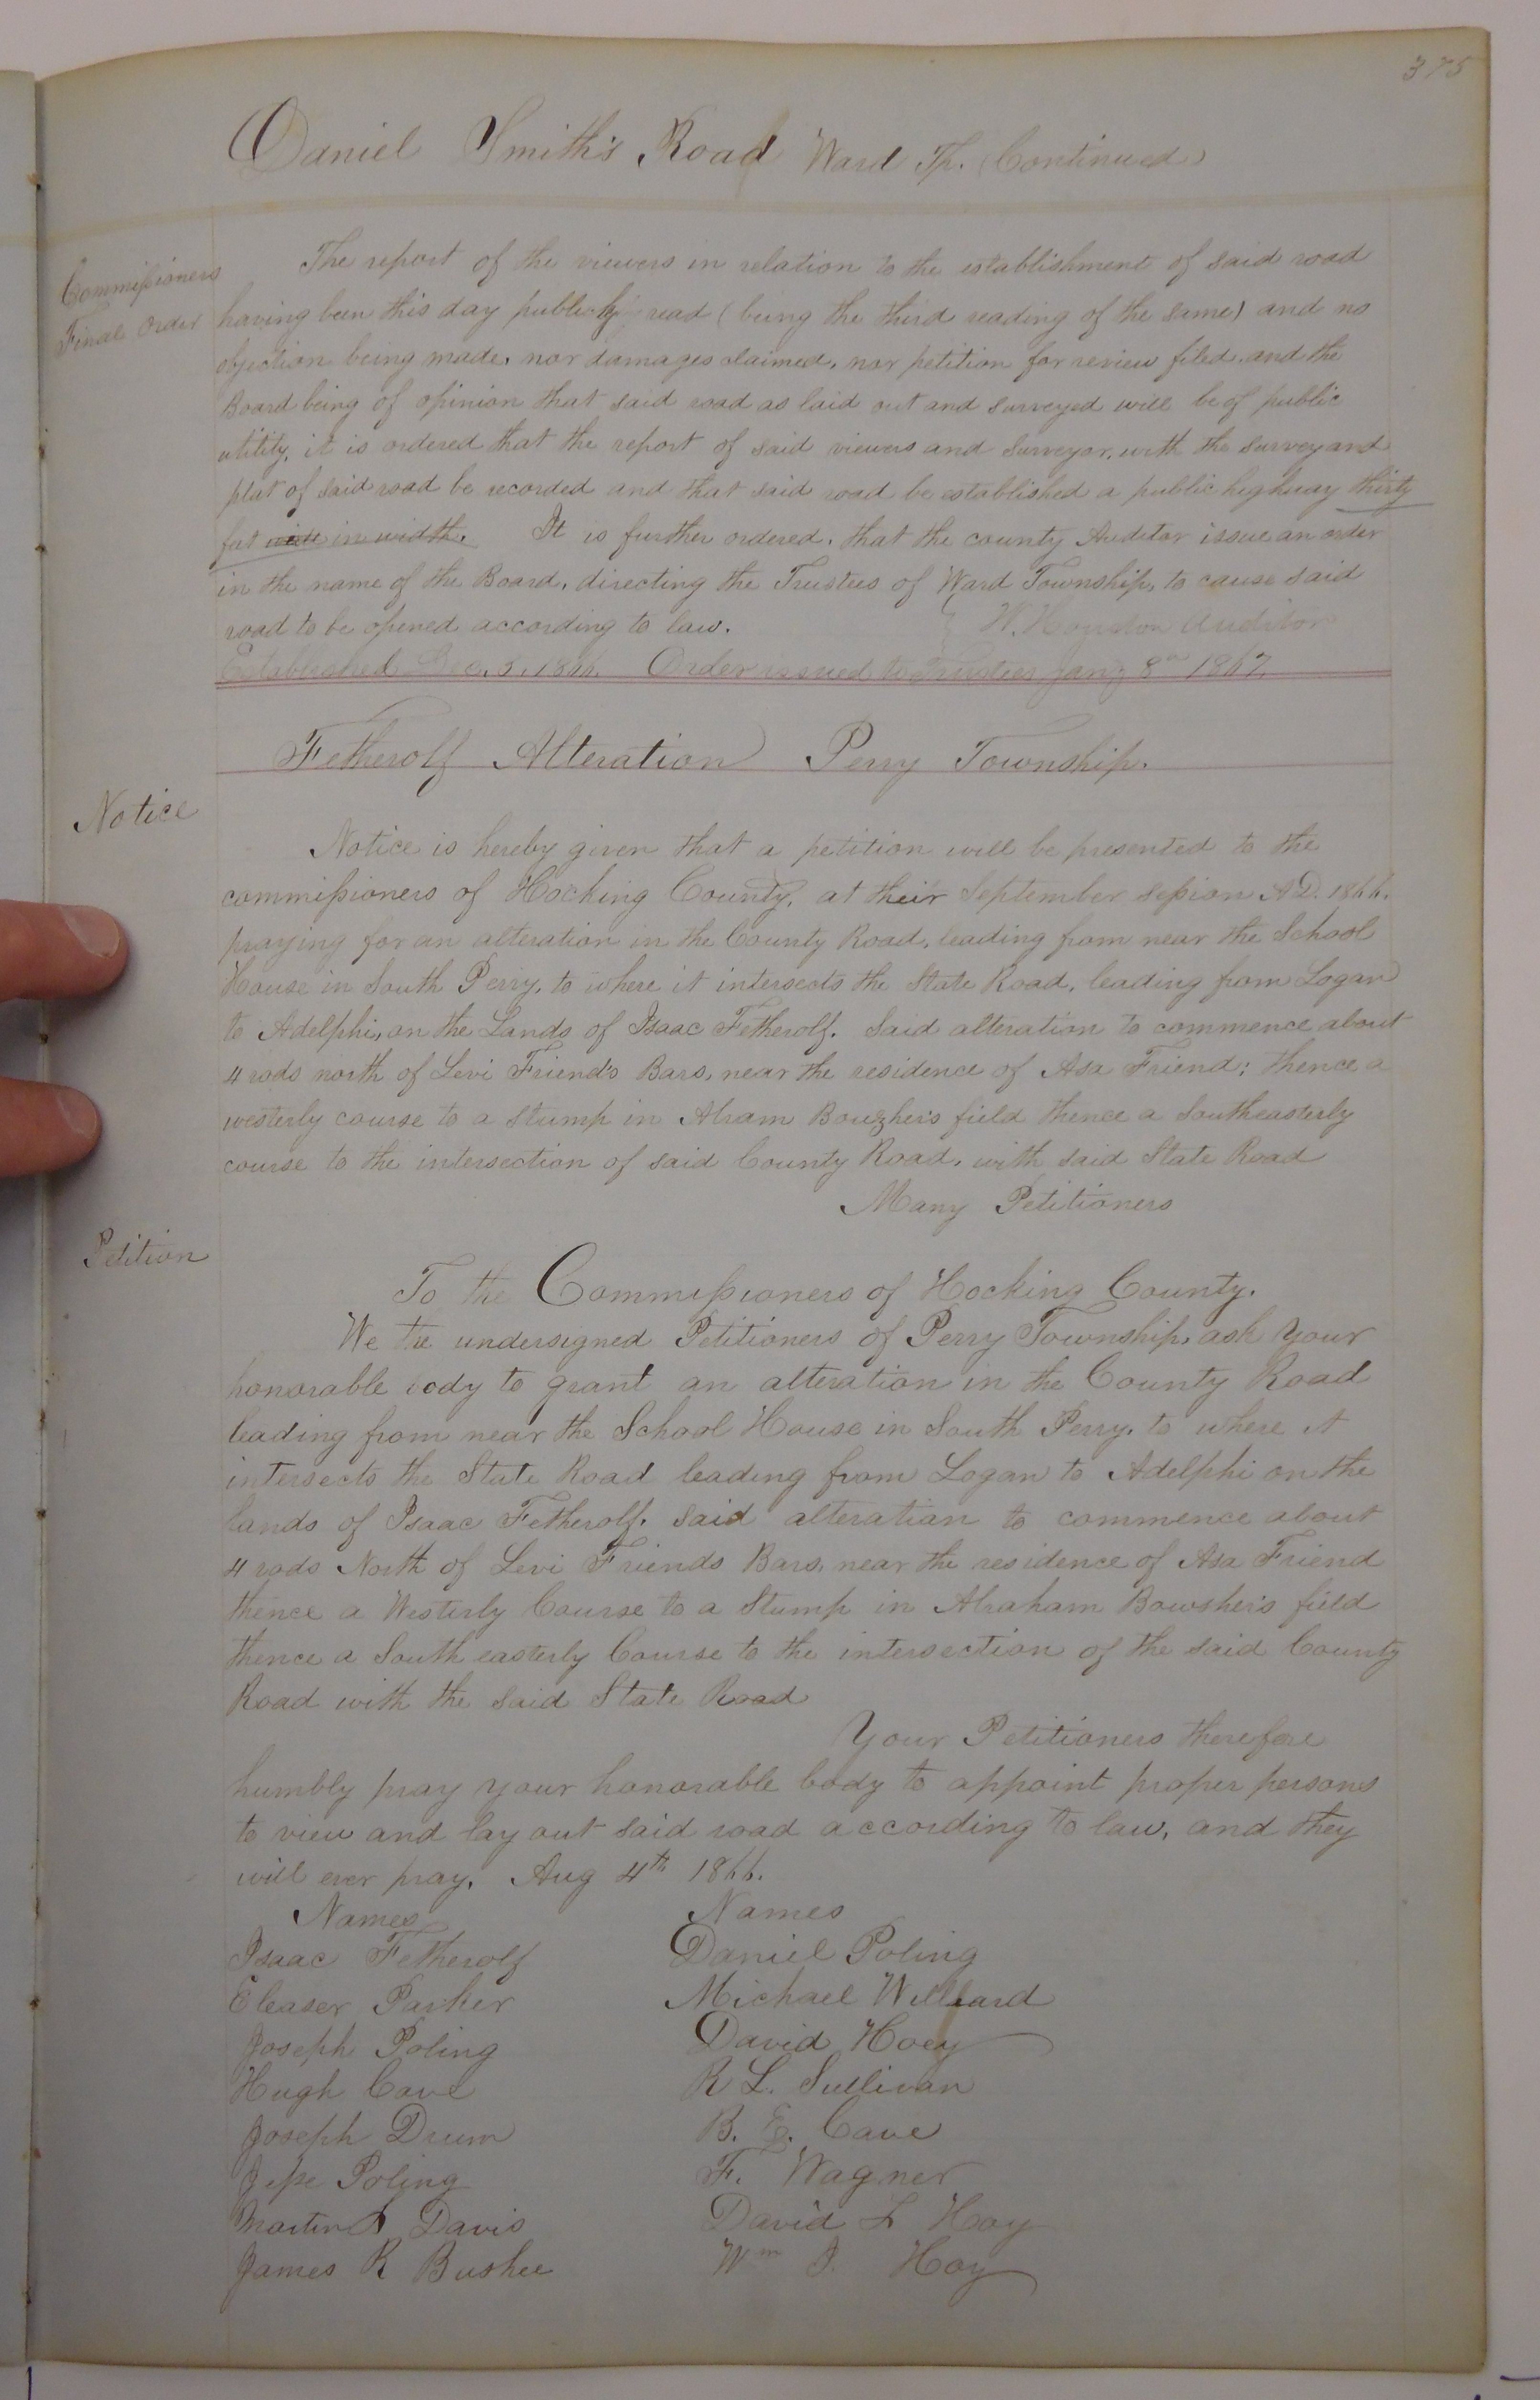 375
Daniel Smith's Road Ward Tp. (Continued)
Commissioners
Final Order
The report of the viewers in relation to the establishment of said road
having been this day publickly read (being the third reading of the same) and no
objection being made, nor damages claimed, nor petition for review filed, and the
Board being of opinion that said road as laid out and surveyed will be of public
utility, it is ordered that the report of said viewers and surveyor, with the survey and
plat of said road be recorded and that said road be established a public highway thirty
feet wide in width. It is further ordered, that the county Auditor issue an order
in the name of the Board, directing the Trustees of Ward Township, to cause said
road to be opened according to law. W. Houston Auditor
Established Dec. 5. 1866. Order issued to Trustees Jany 8th 1867.
Fetherolf Alteration Perry Township.
Notice
Notice is hereby given that a petition will be presented to the
commissioners of Hocking County, at their September session A.D. 1866.
praying for an alteration in the County Road, leading from near the School
House in South Perry, to where it intersects the State Road, leading from Logan
to Adelphi, on the Lands of Isaac Fetherolf. Said alteration to commence about
4 rods north of Levi Friend's Bars, near the residence of Asa Friend; thence a
westerly course to a Stump in Abram Bouzher's field thence a Southeasterly
course to the intersection of said County Road, with said State Road
Many Petitioners
Petition
To the Commissioners of Hocking County.
We the undersigned Petitioners of Perry Township, ask your
honorable body to grant an alteration in the County Road
leading from near the School House in South Perry, to where it
intersects the State Road leading from Logan to Adelphi on the
lands of Isaac Fetherolf. Said alteration to commence about
4 rods North of Levi Friends Bars, near the residence of Asa Friend
thence a Westerly Course to a Stump in Abraham Bowsher's field
thence a South easterly Course to the intersection of the said County
Road with the said State Road
Your Petitioners therefore
humbly pray your honorable body to appoint proper persons
to view and lay out said road according to law, and they
will ever pray. Aug 4th 1866.
Names Names
Isaac Fetherolf Daniel Poling
Eleaser Parker Michael Willard
Joseph Poling David Hoey
Hugh Cave R L. Sullivan
Joseph Drum B. E. Cave
Jesse Poling F. Wagner
Martin Davis David L Hoy
James R Bushee Wm J. Hoy